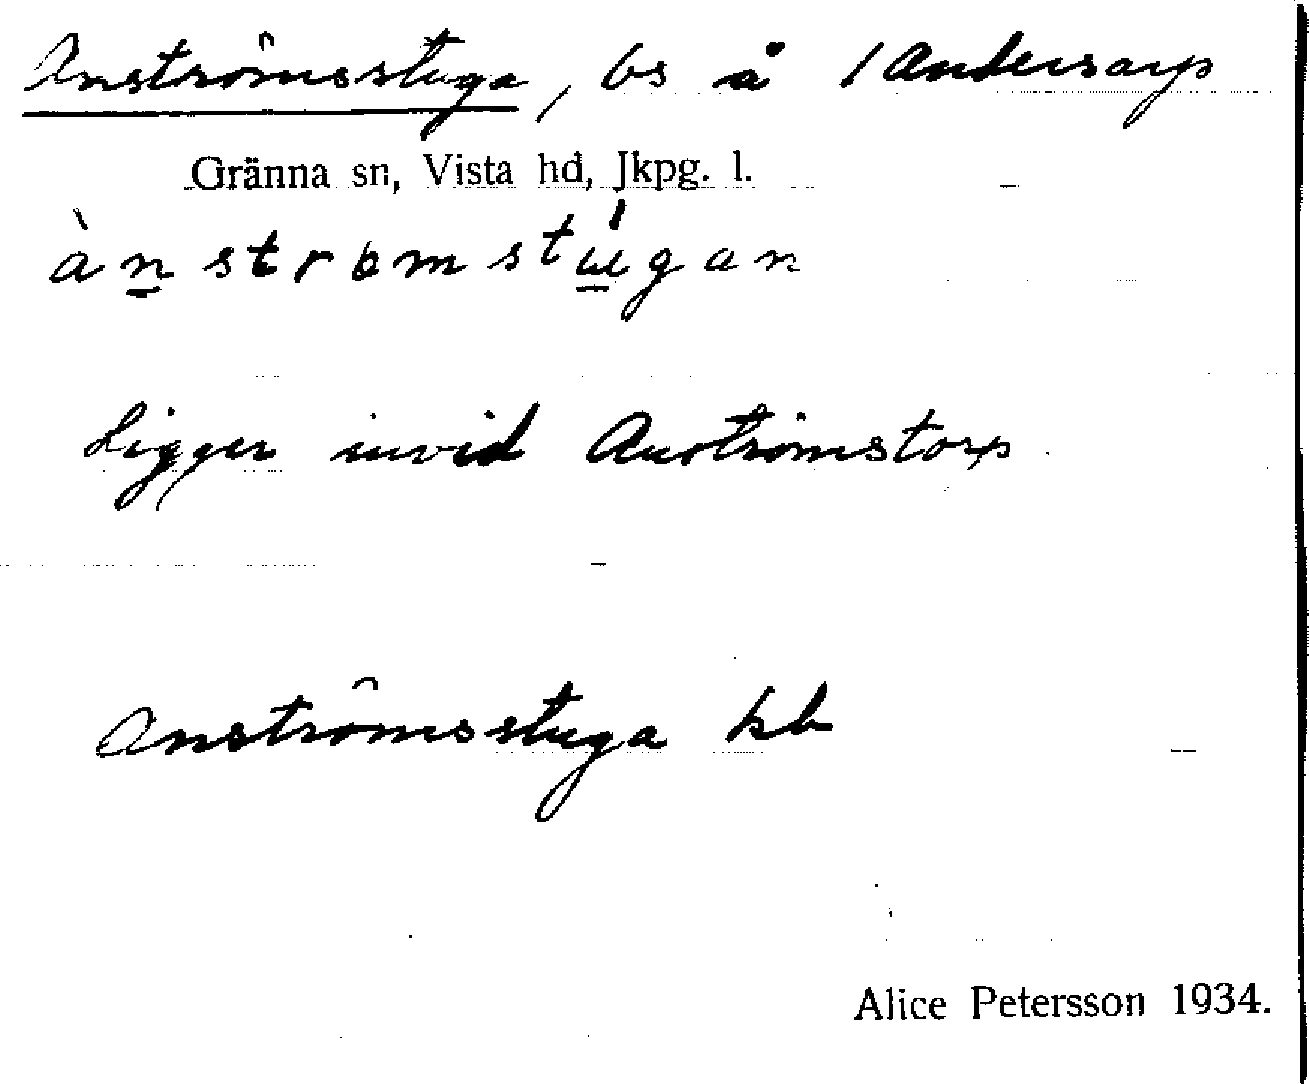 Anströmsstuga, bs å / Andersarp
Gränna sn, Vista hd, Jkpg. l.
ànströmstúgan
Ligger invid Anströmstorp
Anströmsstuga kb
Alice Petersson 1934.